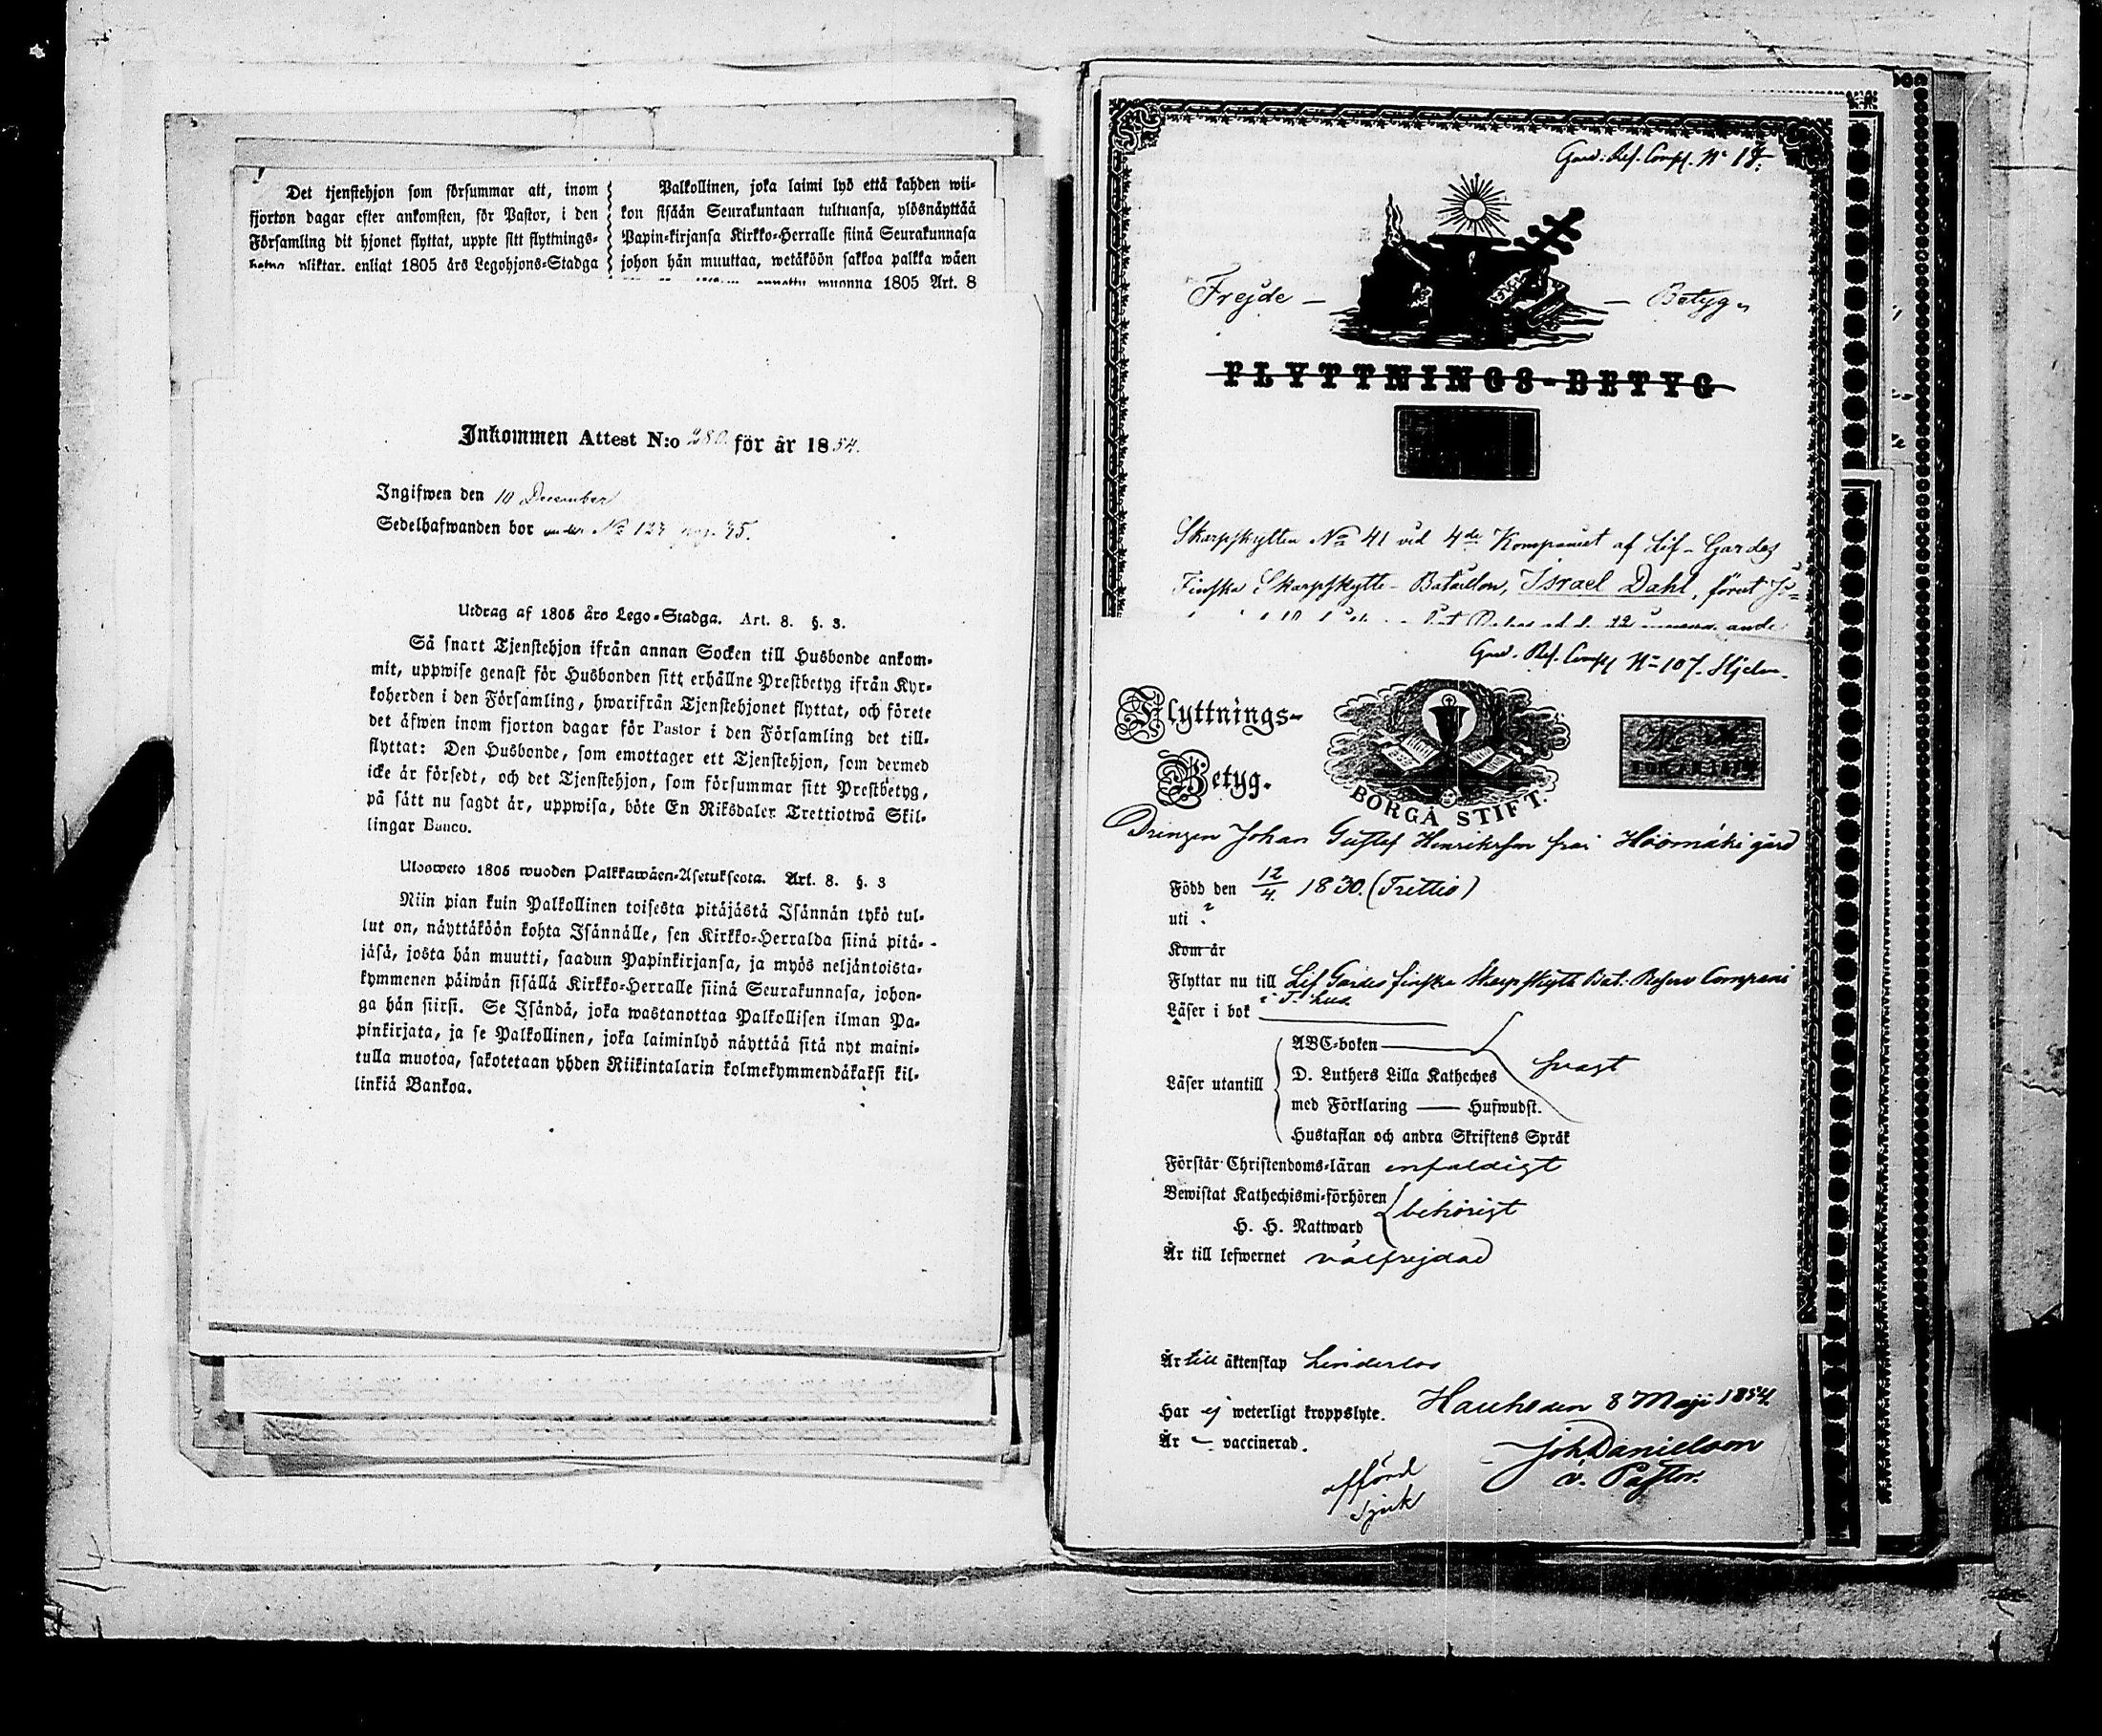 Det tjenstehjon som försummar att, inom
fjorton dagar efter ankomsten, för Pastor, i den
Församling dit hjonet flyttat, uppte sitt flyttnings-
betyg pliktar, enligt 1805 års Legohjons-Stadga
Palkollinen, joka laimi lyö että kahden wii-
kon sisään Seurakuntaan tultuansa, ylösnäyttää
Papin-kirjansa Kirkko-Herralle siinä Seurakunnasa
johon hän muuttaa, wetäköön sakkoa palkka wäen
annettu wuonna 1805 Art. 8
Inkommen Attest N:o 280. för år 1854.
Ingifwen den 10 December
Sedelhafwanden bor under No 127 pag. 95.
Utdrag af 1805 års Lego-Stadga. Art. 8. §. 3.
Så snart Tjenstehjon ifrån annan Socken till Husbonde ankom-
mit, uppwise genast för Husbonden sitt erhållne Prestbetyg ifrån Kyr-
koherden i den Församling, hwarifrån Tjenstehjonet flyttat, och förete
det äfwen inom fjorton dagar för Pastor i den Församling det till-
flyttat: Den Husbonde, som emottager ett Tjenstehjon, som dermed
icke är försedt, och det Tjenstehjon, som försummar sitt Prestbetyg,
på sätt nu sagdt är, uppwisa, böte En Riksdaler Trettiotwå Skil-
lingar Banco.
Ulosweto 1805 wuoden Palkkawäen-Asetuksesta. Art. 8. §. 3
Niin pian kuin Palkollinen toisesta pitäjästä Isännän tykö tul-
lut on, näyttäköön kohta Isännälle, sen Kirkko-Herralda siinä pitä-
jäsä, josta hän muutti, saadun Papinkirjansa, ja myös neljäntoista-
kymmenen päiwän sisällä Kirkko-Herralle siinä Seurakunnasa, johon-
ga hän siirsi. Se Isändä, joka wastanottaa Palkollisen ilman Pa-
pinkirjata, ja se Palkollinen, joka laiminlyö näyttää sitä nyt maini-
tulla muotoa, sakotetaan yhden Riikintalarin kolmekymmendäkaksi kil-
linkiä Bankoa.
Gard. Res. Comp. No 17.
Frejde - - Betyg
FLYTTNINGS-BETYG
Skarpskytten No 41 vid 4de Kompaniet af Lif-Gardes
Finska Skarpskytte-Bataillon, Israel Dahl, förut
Gard. Res. Comp No 107.
Flyttnings-
Betyg.
BORGÅ STIFT.
Drängen Johan Gustaf Henriksson från Höömäki gård
Född den 12/4 1830. (Trettio)
uti ?
Kom år
Flyttar nu till Lif Gardes finska Skarpskytt Bat: Reserv Compani
i T:hus
Läser i bok
ABC-boken
D. Luthers Lilla Katheches
Läser utantill
svagt
med Förklaring — Hufwudst.
Hustaflan och andra Skriftens Språk
Förstår Christendoms-läran enfaldigt
Bewistat Kathechismi-förhören
behörigt
H. H. Nattward
Är till lefwernet välfrejdad
Är till äktenskap hinderlös
Har ej weterligt kroppslyte.
Hauho den 8 Maji 1854.
Är vaccinerad.
Joh Danielson
v. Pastor.
afförd
sjuk